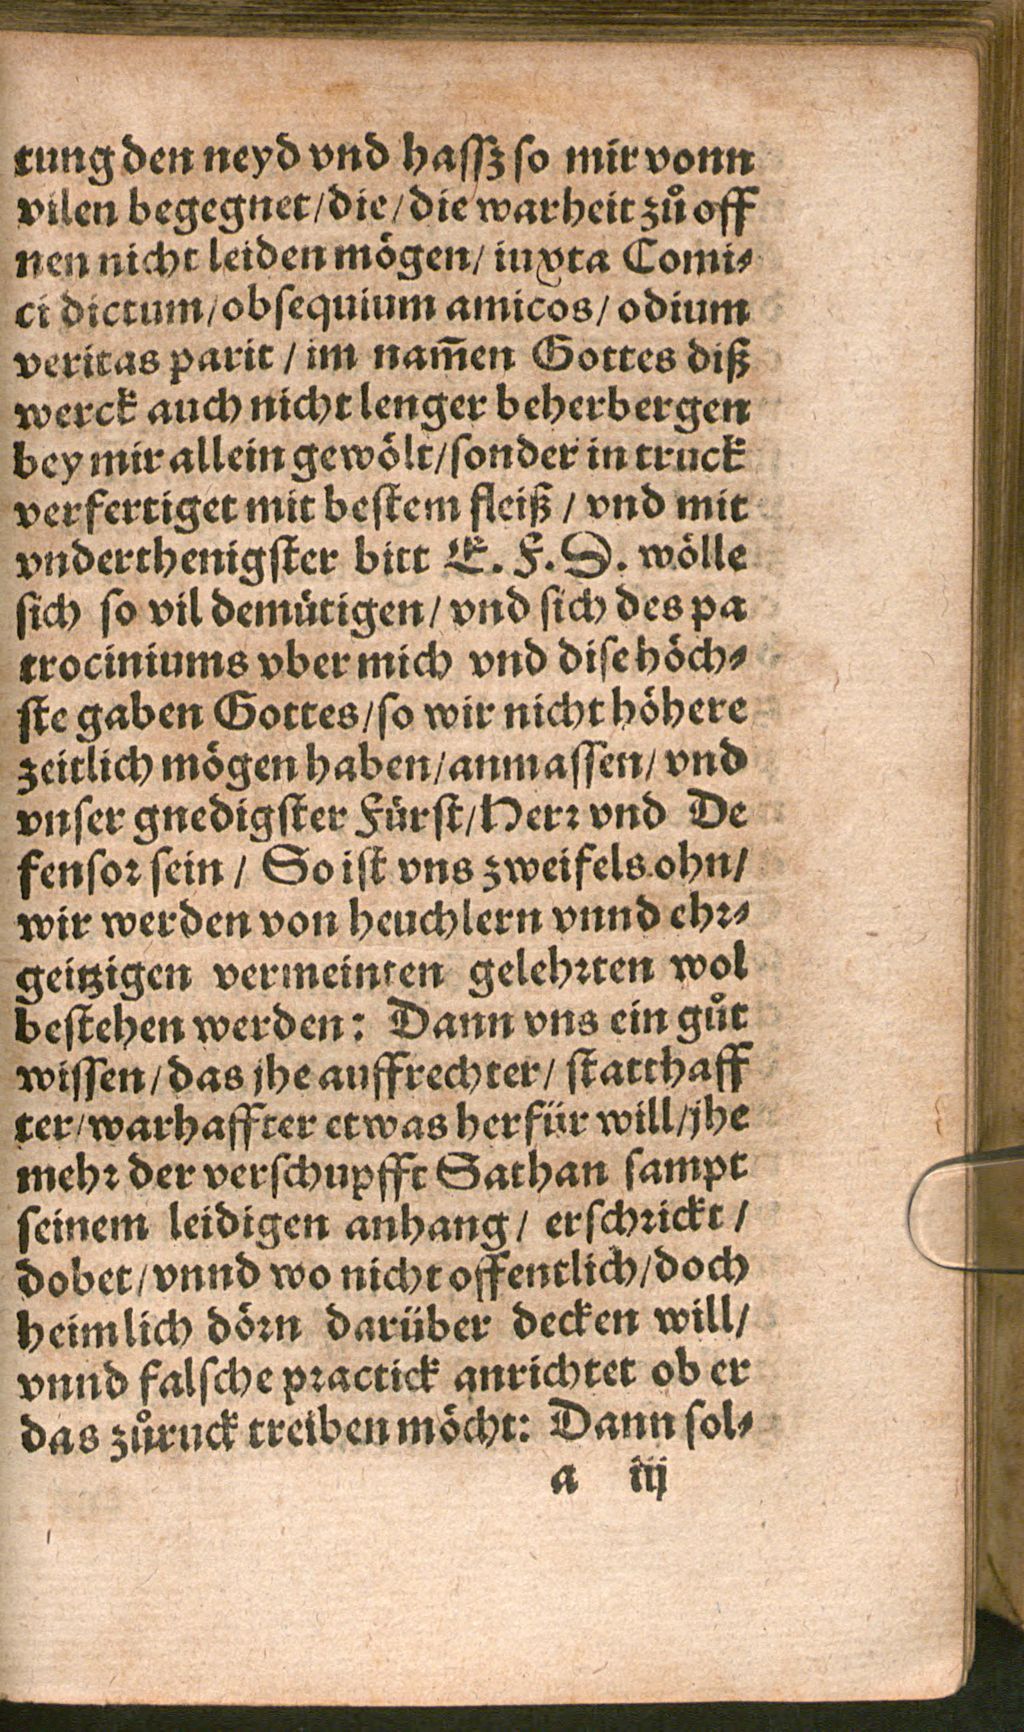 tung den neyd vnd hassz so mir vonn
vilen begegnet/die/die warheit zů off
nen nicht leiden mögen/ iuxta Comi⸗
ci dictum/obsequium amicos/ odium
veritas parit / im nam̄en Gottes diß
werck auch nicht lenger beherbergen
bey mir allein gewölt/sonder in truck
verfertiget mit bestem fleiß / vnd mit
vnderthenigster bitt E. F. D. wölle
sich so vil demütigen/ vnd sich des pa
trociniums vber mich vnd dise höch⸗
ste gaben Gottes/so wir nicht höhere
zeitlich mögen haben/anmassen/ vnd
vnser gnedigster Fürst/Herꝛ vnd De
fensoꝛ sein / So ist vns zweifels ohn/
wir werden von heuchlern vnnd ehꝛ⸗
geitzigen vermeinten gelehꝛten wol
bestehen werden: Dann vns ein gůt
wissen/das jhe auffrechter/ statthaff
ter/warhaffter etwas herfür will/jhe
mehꝛ der verschupfft Sathan sampt
seinem leidigen anhang/ erschꝛickt /
dobet/vnnd wo nicht offentlich/doch
heimlich döꝛn darüber decken will/
vnnd falsche pꝛactick anrichtet ob er
das zůruck treiben möcht: Dann sol⸗
a iij